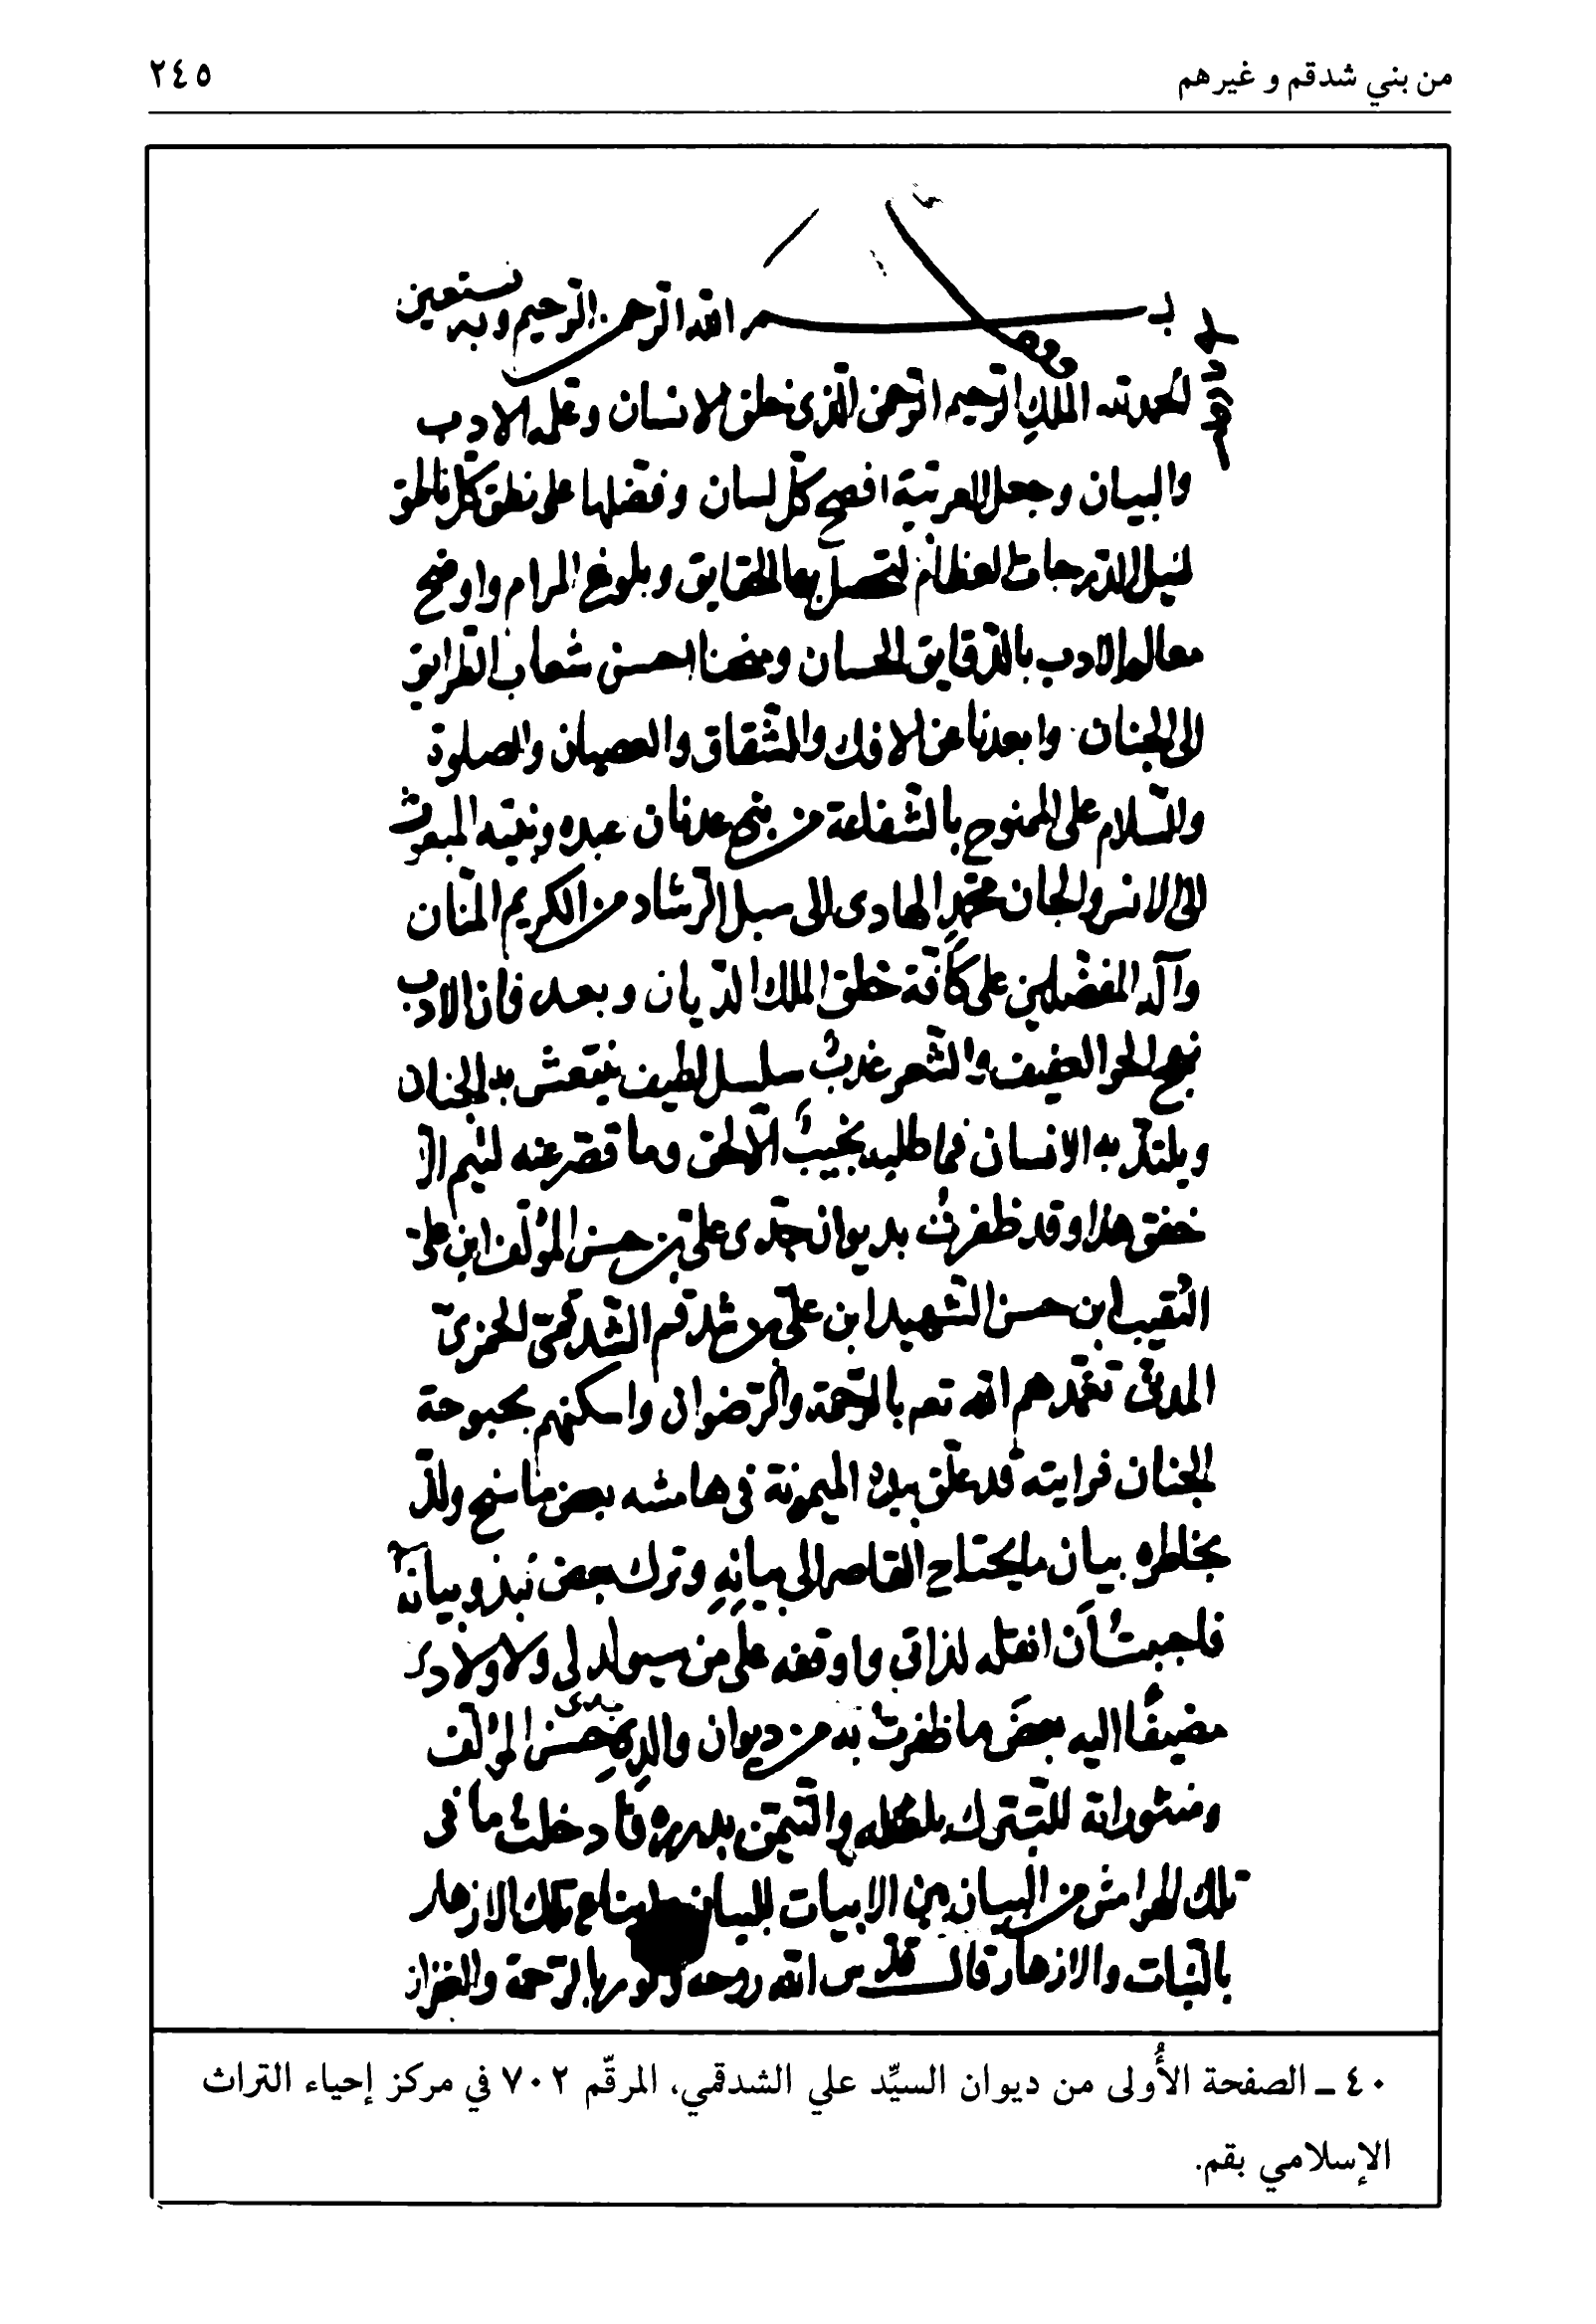 من بني شدقم و غيرهم ٢٤٥
بسم الله الرحمن الرحيم وبه نستعين
الحمد لله الملك الرحيم الرحمن الذى خلق الانسان وعلمه الادب
والبيان وجعل العربية افصح كل لسان وفضلها على نطق كل ناطق
لنيل الدرجات العظام لتحصل بها الحقايق وبلوغ المرام واوضح
معالم الادب بالدقايق الحسان ومنحنا احسن شعاب الطرايق
الى الجنان وابعدنا عن الافك والشقاق والعصيان والصلوة
والسلام على الممنوح بالشفاعة من بنى عدنان عبده ونبيه المبعوث
الى الانس والجان محمد الهادى الى سبل الرشاد من الكريم المنان
وآله المفضلين على كافة خلق الملك الديان وبعد فان الادب
نهج الحر العفيف والشعر عذب سلسل لطيف ينتعش به الجنان
ويلتذ به الانسان فما طلبه نجيب الا لحق وما قصر عنه لئيم الا
خفق هذا وقد ظفرت بديوان جدى على بن حسن المؤلف ابن على
النقيب ابن حسن الشهيد ابن على بن شدقم الشدقمى الحمزى
المدنى تغمدهم الله تعه بالرحمة والرضوان واسكنهم بحبوحة
الجنان فرايته قد علق بيده الميمونة فى هامشه بعض ما سنح ولذ
بخاطره بيان ما يحتاج القاصر الى بيانه وترك بعض نبذ وبيانه
فاحببت أن انقله لذاتى واوقفه على من سيولد لى ولاولادى
مضيفا اليه بعض ما ظفرت به من ديوان والده جدى حسن المؤلف
ومنثوراته للتبرك والتيمن فادخلت ما فى
تلك الهوامش من البيان بين الابيات تلك الازهار
بالنبات والازهار قال قدس الله روحه بالرحمة والغفران
٤٠ ـ الصفحة الأُولى من ديوان السيِّد علي الشدقمي، المرقّم ٧٠٢ في مركز إحياء التراث
الإسلامي بقم.